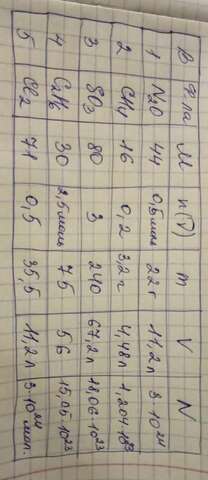 В Ф-ла М n(ν) m V N
1 N₂O 44 0,5 моль 22 г 11,2 л 3·10²⁴
2 CH4 16 0,2 3,2 г 4,48 л 1,204·10²³
3 SO₃ 80 3 240 67,2 л 18,06·10²³
4 C₂H₆ 30 2,5 моль 75 56 15,05·10²³
5 Cl₂ 71 0,5 35,5 11,2 л 3·10²⁴ мол.